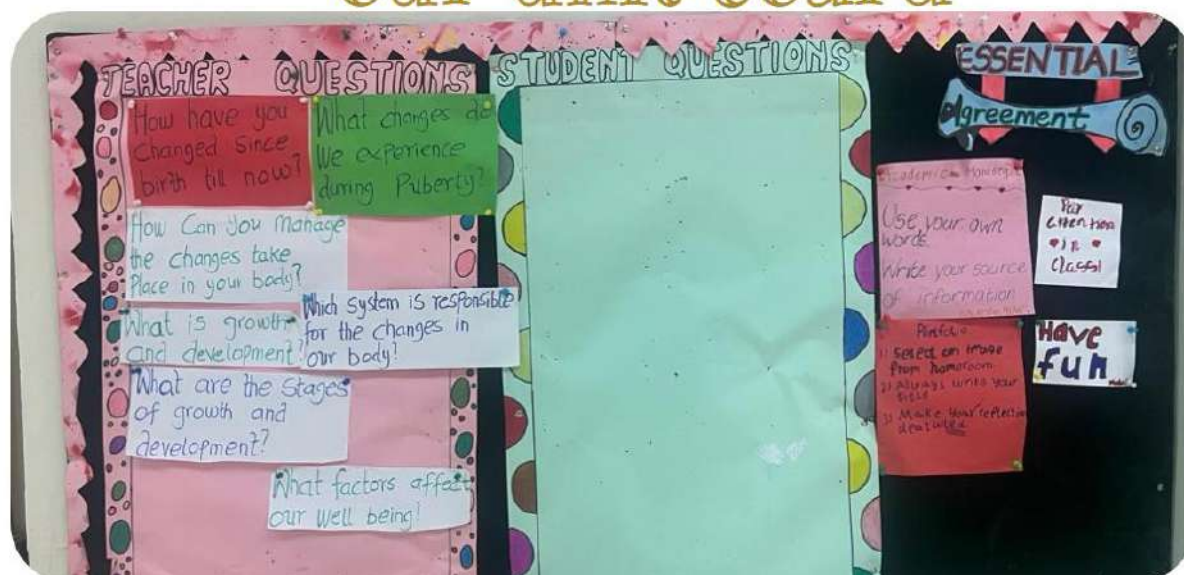 TEACHER QUESTIONS
How have you
Changed since
birth till now?
What changes do
We experience
during Puberty?
How Can you manage
the changes take
Place in your body?
Which system is responsible
for the changes in
our body?
What is growth
and development?
What are the stages
of growth and
development?
What factors affect
our well being?
STUDENT QUESTIONS
ESSENTIAL
Agreement
Use your own
words.
Write your source
of information
Pay
attention
in
class!
Portfolio
1) Select an image
from homeroom
2) Always write your
title
3) Make your reflection
Have
fun